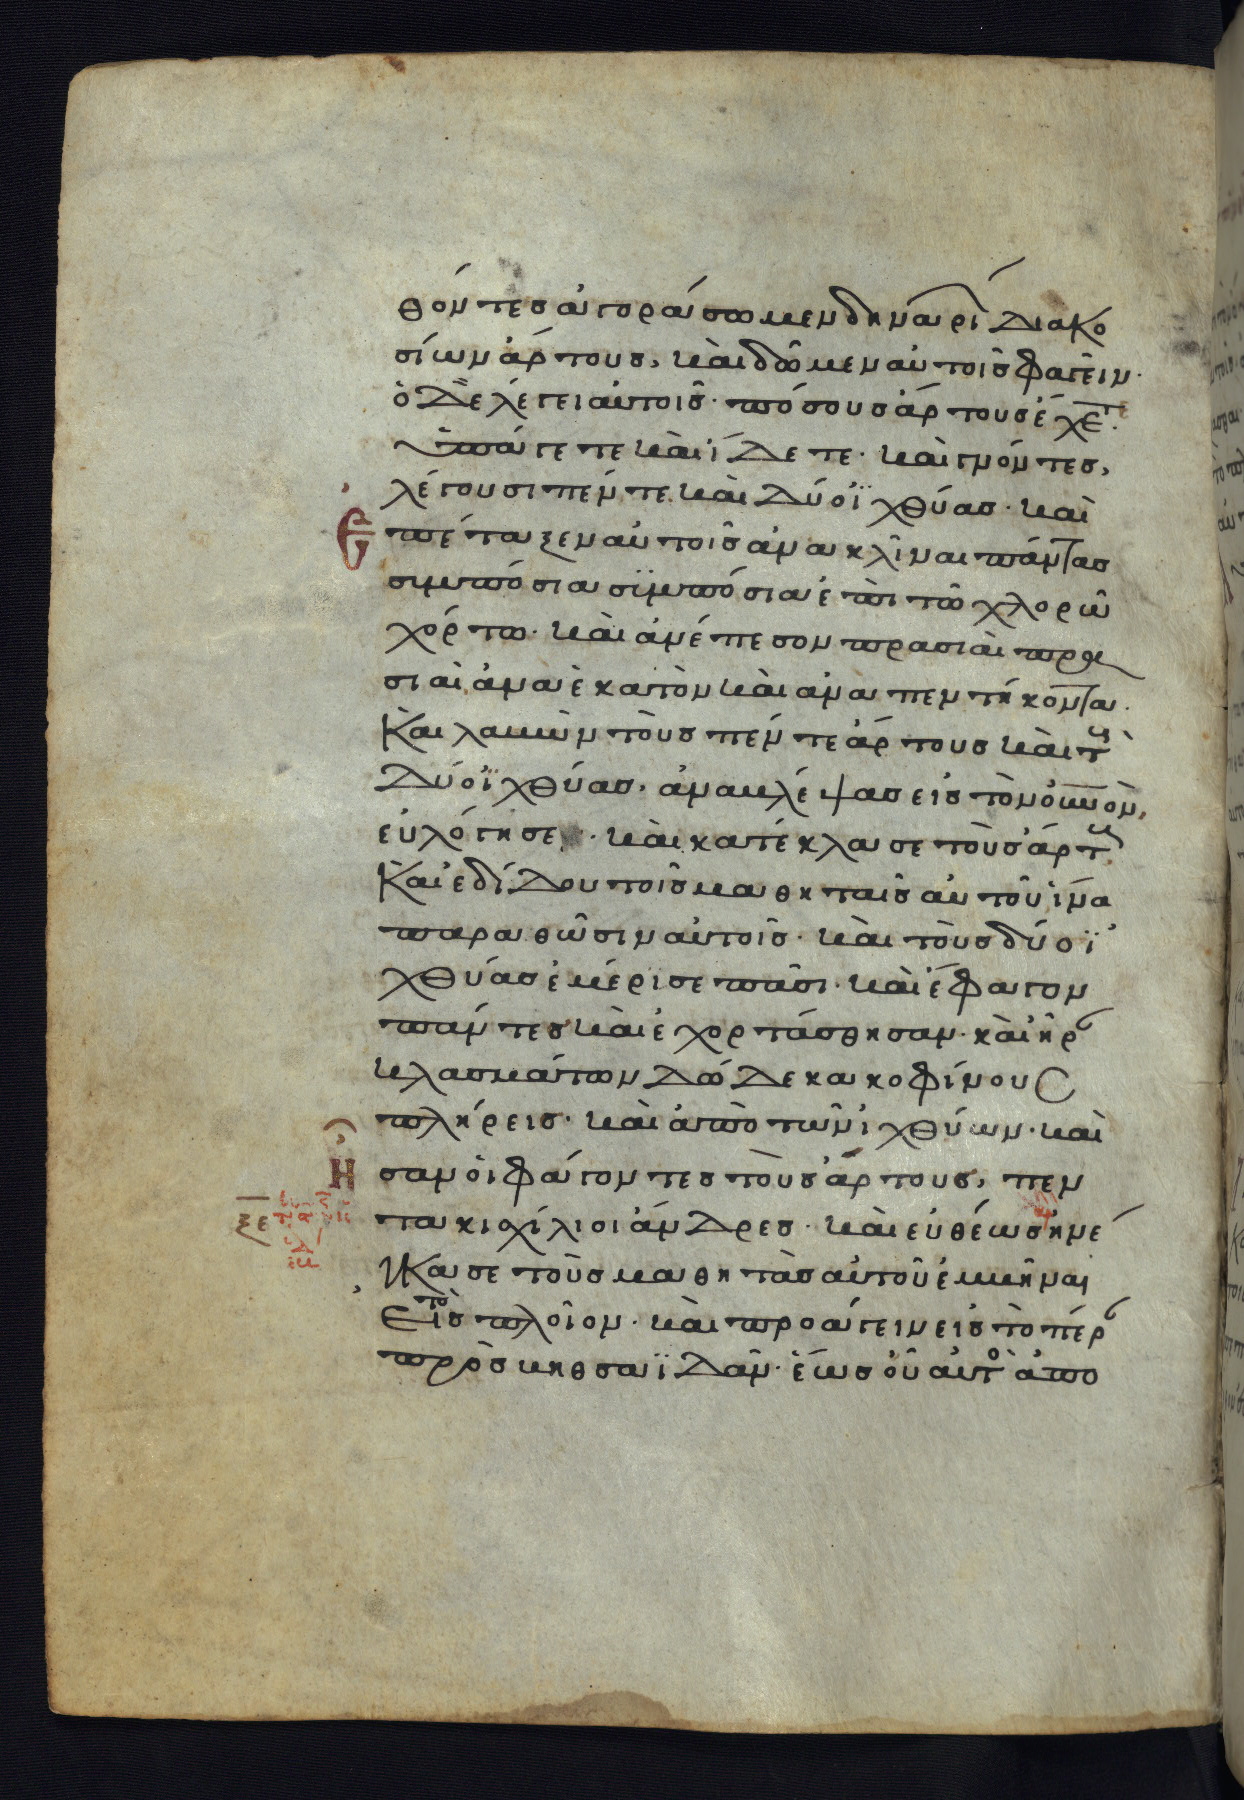 θόντες ἀγοράσωμεν δηναρί διακο
σίων ἄρτους, καὶ δῶμεν αὐτοῖς φαγεῖν·
ὁ δὲ λέγει αὐτοῖς· πόσους ἄρτους ἔχε̅τ·
ὑπάγετε καὶ ἴδετε· καὶ γνόντες,
λέγουσι πέντε καὶ δύο ἰχθύας· καὶ
Ἐπέταξεν αὐτοῖς ἀνακλῖναι πάντας
σιμπόσια σϊμπόσια ἐπὶ τῶ χλορῶ
χόρτω· καὶ ἀνέπεσον πρασιαὶ πρα
σιαὶ ἀνα ἑκατὸν καὶ ἀνα πεντήκοντα·
Καὶ λαβὼν τοὺς πέντε ἄρτους καὶ τοὺς
δύο ϊχθύας· ἀναβλέψας εἰς τὸν οὐνὸν,
εὐλόγησε· καὶ κατέκλασε τοὺς ἄρτους
Καὶ ἐδίδου τοῖς μαθηταῖς αὐτοῦ ἵνα
παραθῶσιν αὐτοῖς· καὶ τοὺς δύο ϊ
χθύας ἐμέρισε πᾶσι· καὶ ἔφαγον
πάντες καὶ ἐχορτάσθησαν· καὶ ἦρ
κλασμάτων δώδεκα κοφίνους
πλήρεις· καὶ ἀπὸ τῶν ἰχθύων· καὶ
Ἦσαν οἱ φάγοντες τοὺς ἄρτους, πεν
ξε τακισχίλιοι ἄνδρες· καὶ εὐθέως ἠνά
γκασε τοὺς μαθητὰς αὐτοῦ ἐμβῆναι
Εἰς τὸ πλοῖον· καὶ προάγειν εἰς τὸ πέρ
πρὸς βηθσαϊδάν· ἕως οὗ αὐτὸ ἀπο